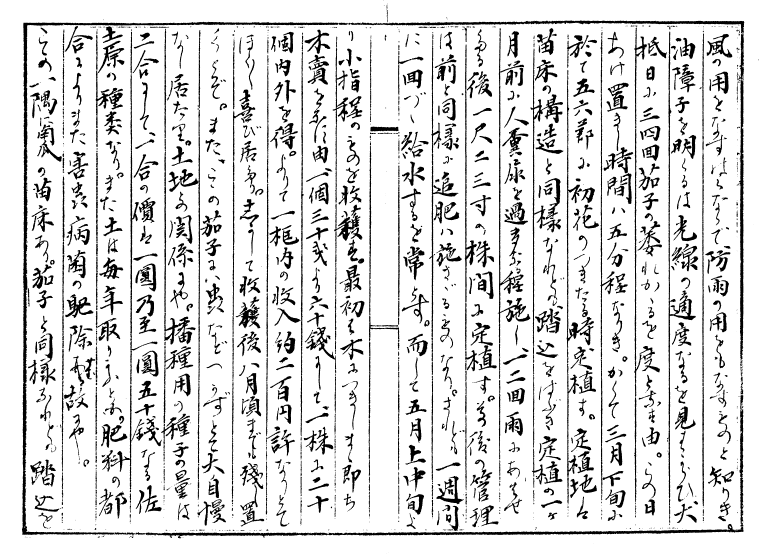 風の用となすはかなりで防雨の用ともなすものと知りき。
油障子を明くるは光線の適度なるを見はからひ大
抵日に三四回茄子の萎れかゝるを度とする由。この日
あけ置きし時間は五分程なりき。かくて三月下旬に
於て五六節に初花のつきたる時定植す。定植地は
苗床の構造と同様なれども踏込をはぶき定植の一ヶ
月前に人糞尿を過まる程施し、一二回雨にあはせ
たる後一尺二三寸の株間に定植す。其後の管理
は前と同様に追肥は施さざるものなり。されども一週間
に一回づゝ給水するを常とす。而して五月上中旬よ
り小指程のものを收穫す。最初は木につきしまゝ即ち
木賣とする由一個三十錢より六十錢にして、一株に二十
個内外を得。よりて一框内の收入約二百円許なりとて
ほくほく喜び居たり。しかして收穫後八月頃まで残し置
くとぞ。また、この茄子には虫などつかずと大自慢
なし居たり。土地の関係にや。播種用の種子の量は
二合にして、一合の價は一圓乃至一圓五十錢なる佐
土原の種類なり。また土は毎年取りかふと。肥料の都
合によりまた害虫病菌の駆除の故にや。
この一隅に南瓜の苗床あり。茄子と同様なれども踏込を